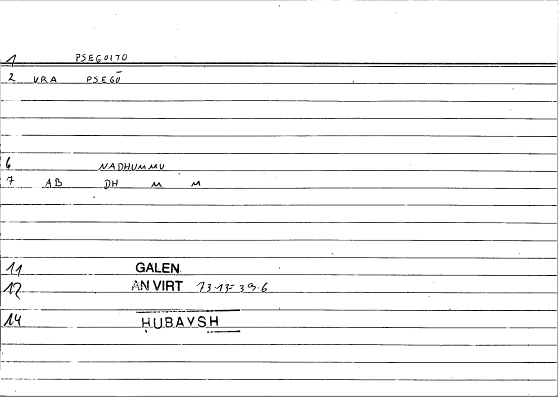 1 PSEGOITO
2 VRA PSEGŌ
6 NADHUMMU
7 AB DH M M
11 GALEN
12 AN VIRT
14 HUBAYSH